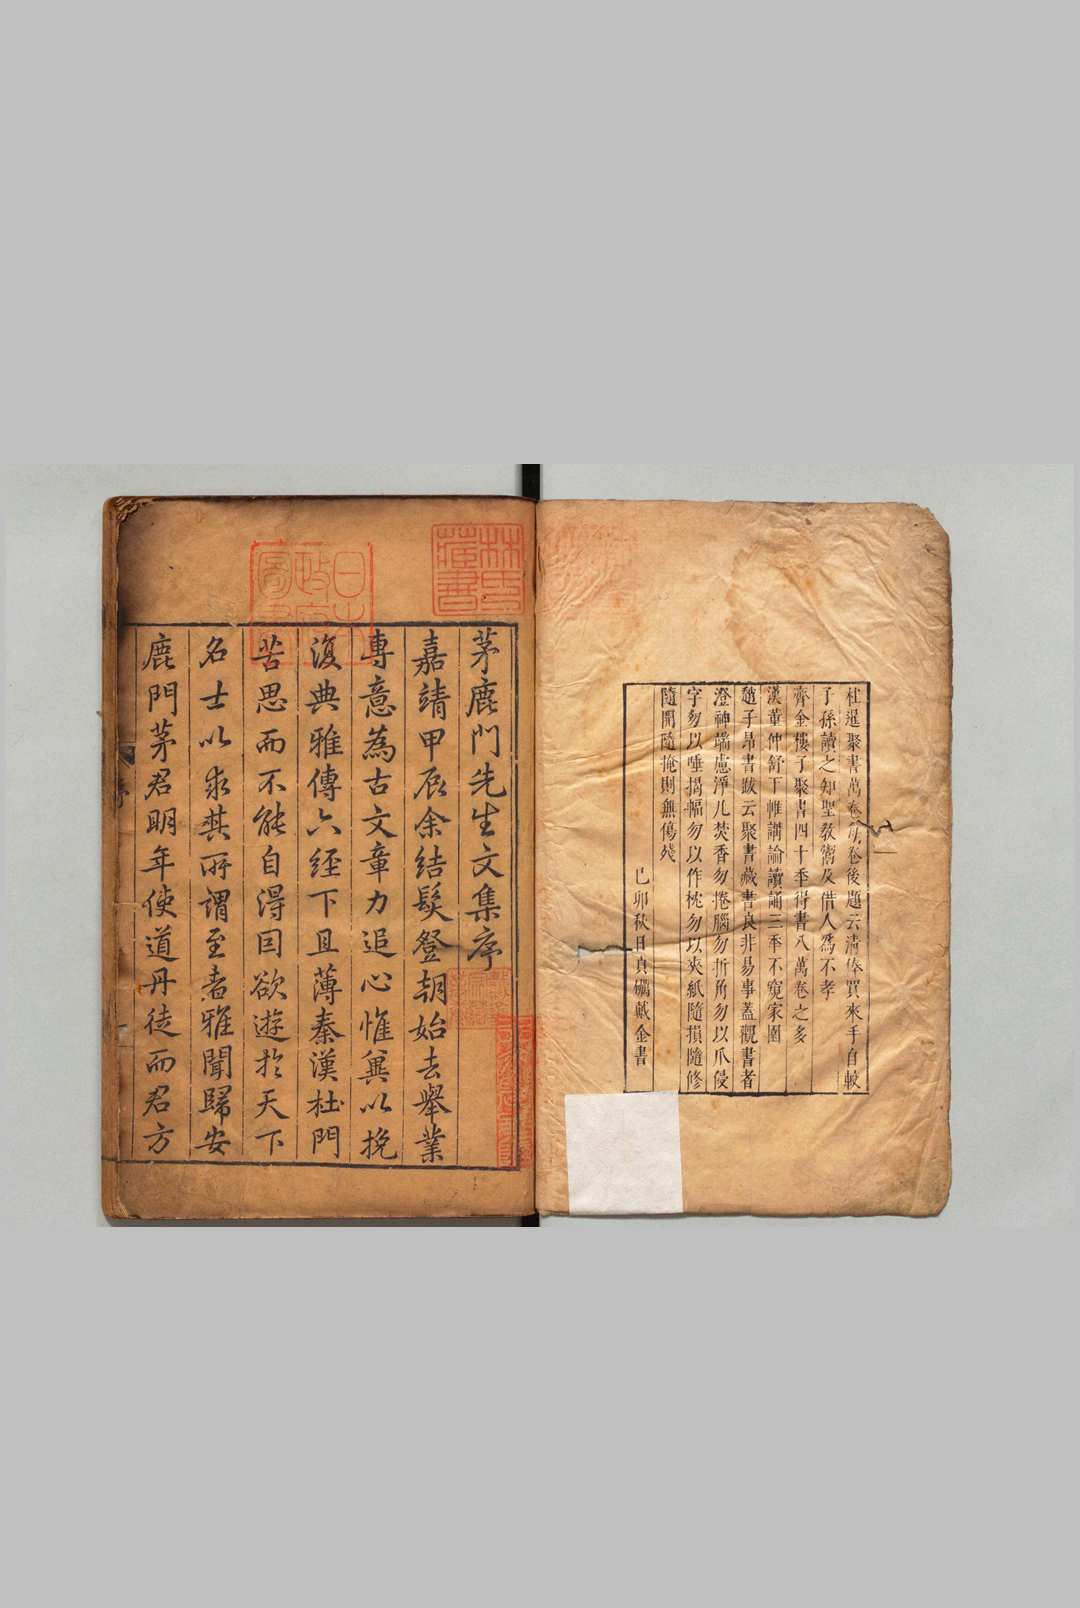 杜暹聚書萬卷每卷後題云清俸買來手自較
子孫讀之知聖教鬻及借人爲不孝
齊金樓子聚書四十季得書八萬卷之多
漢董仲舒下帷講論讀誦三季不窺家園
趙子昂書跋云聚書藏書良非易事蓋觀書者
澄神端慮淨几焚香勿捲腦勿折角勿以爪侵
字勿以唾揭幅勿以作枕勿以夾紙隨損隨修
隨開隨掩則無傷殘
己卯秋日真礪戴金書
茅鹿門先生文集序
嘉靖甲辰余結髮登朝始去舉業
專意為古文章力追心惟冀以挽
復典雅傳六經下且薄秦漢杜門
苦思而不能自得因欲遊於天下
名士以求其所謂至者雅聞歸安
鹿門茅君明年使道丹徒而君方
林氏藏書
日本政府圖書